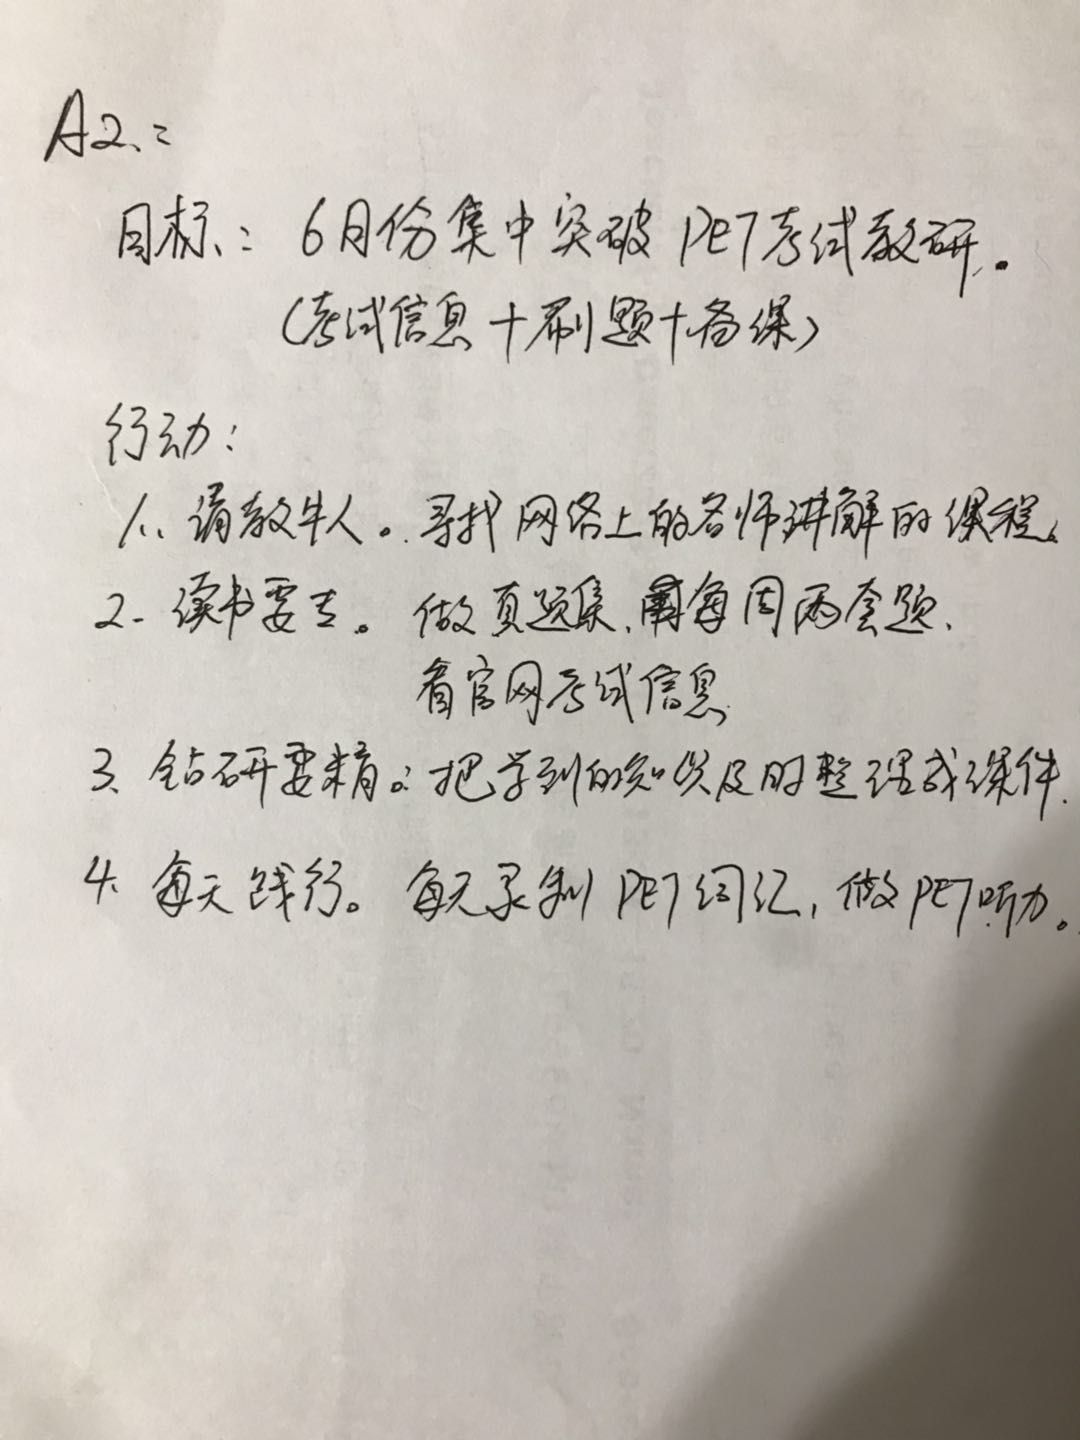 A2、:
目标: 6月份集中突破PET考试教研。
(考试信息+刷题+备课)
行动:
1、请教牛人。寻找网络上的名师讲解的课程。
2、读书要主。做真题集、每周两套题、
看官网考试信息
3、钻研要精。把学到的知识及时整理成课件.
4、每天践行。每天录制PET词汇,做PET听力。